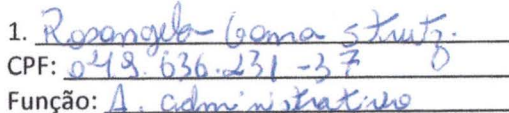 1. Rosangela Gama Strutz.
CPF: 049.636.231-37
Função: A. administrativo